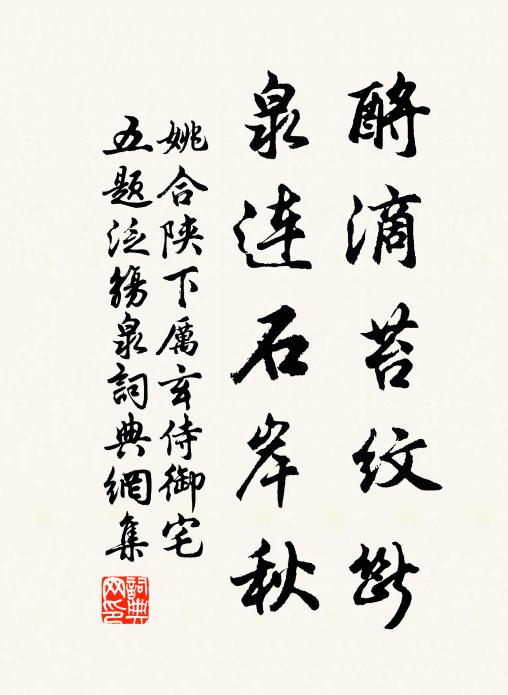 酹滴苔纹断
泉连石岸秋
姚合陕下厲玄侍御宅
五题泛觞泉詞典網集
詞典网印